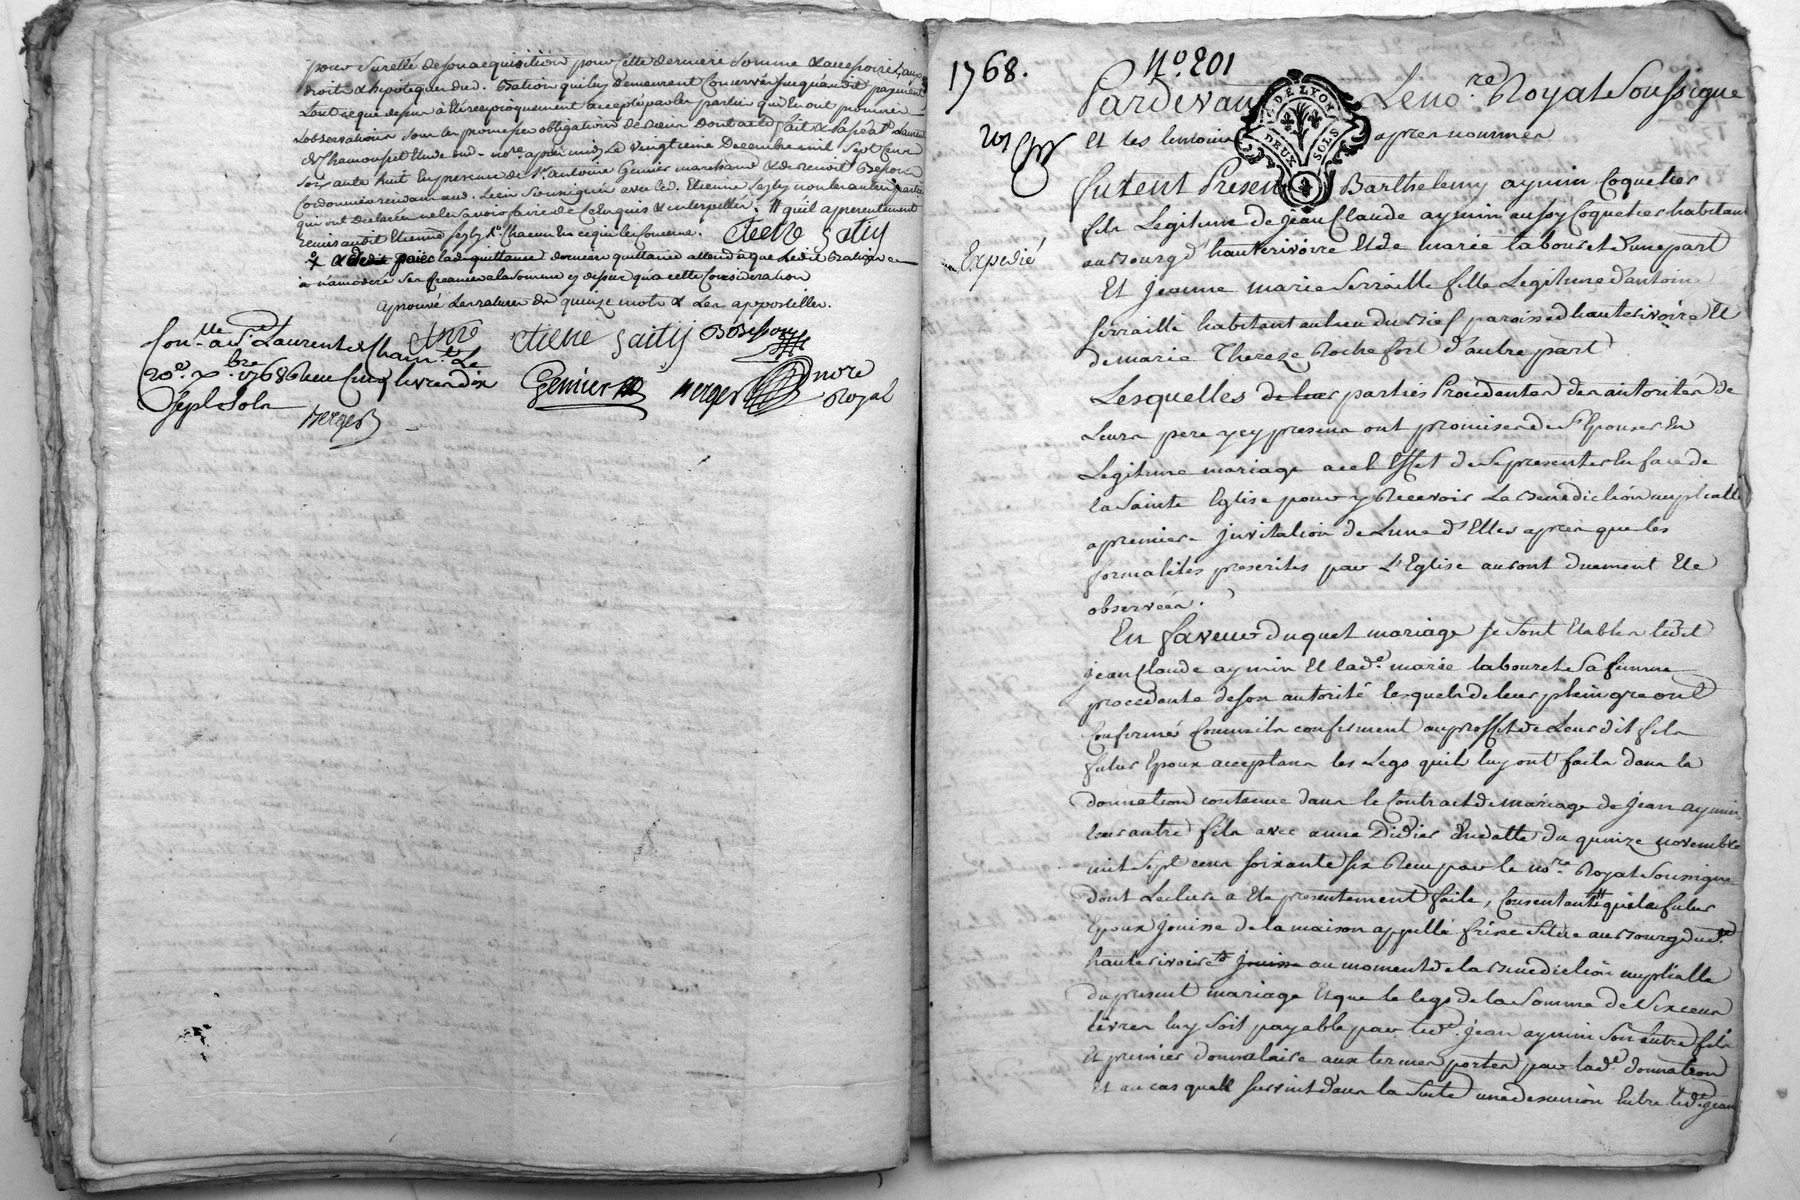 pour surette de son acquisition pour cette derniere somme & accessoires, aux
droits & hipoteques dud. Bration qui luy demeurent conservés jusqu'audit payement
tout ce que dessus a été reciproquement accepté par les parties qui en ont promis
l'observation sous les peines obligations de leurs Dont acte fait & passé a St Laurent
de Chamousset Etude dud. nore. apres midy le vingtieme Decembre mil sept cens
soixante huit En presence de sr. antoine Genier marchand & de benoit Besson
Cordonnier demeurans aud. lieu soussignés avec led. Etienne non les autres parties
qui ont declaré ne le savoir faire de ce Enquis & interpellés. # qu'il apparentement
remis audit Etienne chacun En ce qui les concerne.
payer ladite quittance derniere quittance attendu que ledit Bration
a n'a moderé sa creance a la somme cy dessus qu'a cette consideration
aprouvé les ratures de quinze mots & les appostilles.
Conlle. a St. Laurent de Chamt. Le
20e. xbre. 1768 Reçu cinq livres dix
sept sols
Berger
Besson
Genier
Berger nore
Royal
1768.
No. 201
Pardevant Le nore. Royal Soussigné
et les temoins apres nommés
GE. DE LYON
DEUX SOLS
Expedié
furent Presens Barthelemy aymin Coquetier
fils Legitime de Jean Claude aymin aussy Coquetier habitant
au Bourg d'hauterivoire Et de marie labouret d'une part
Et Jeanne marie Serraille fille Legitime d'antoine
Serraille habitant au lieu du Rief paroisse d'hauterivoire Et
de marie Thereze Rochefort d'autre part
Lesquelles de leur parties Procedantes des autorités de
Leurs pere y cy presens ont promis de S'Epouser En
Legitime mariage a cet Effet de se presenter En face de
la Sainte Eglise pour y Recevoir La Benediction nuptialle
a premiere jnvitation de L'une d'Elles apres que les
formalites prescrites par L'Eglise auront duement Eté
observées.
En faveur duquel mariage se sont Etablis ledit
Jean Claude aymin Et lade. marie labouret Sa femme
procedante de son autorité lesquels de leur plein gré ont
Confirmé Comme ils confirment au proffit de Leur dit fils
futur Epoux acceptant les Legs qu'ils luy ont faits dans la
donnation contenue dans le Contract de mariage de Jean aymin
leur autre fils avec anne Didier En datte du quinze novembre
mil sept cens soixante six Reçu par le nore. Royal Soussigné
dont Lecture a Eté presentement faite, Consentant qu'il a futur
Epoux jouisse de la maison appellé frise Située au Bourg dud.
hauterivoire jouisse au moment de la Benediction nuptialle
du present mariage Et que le legs de la Somme de Six cens
livres luy soit payable par led. Jean aymin Son autre fils
Et premier donnataire aux termes portés par lade. donnation
Et au cas qu'il survint dans la Suite une desunion Entre led. Jean